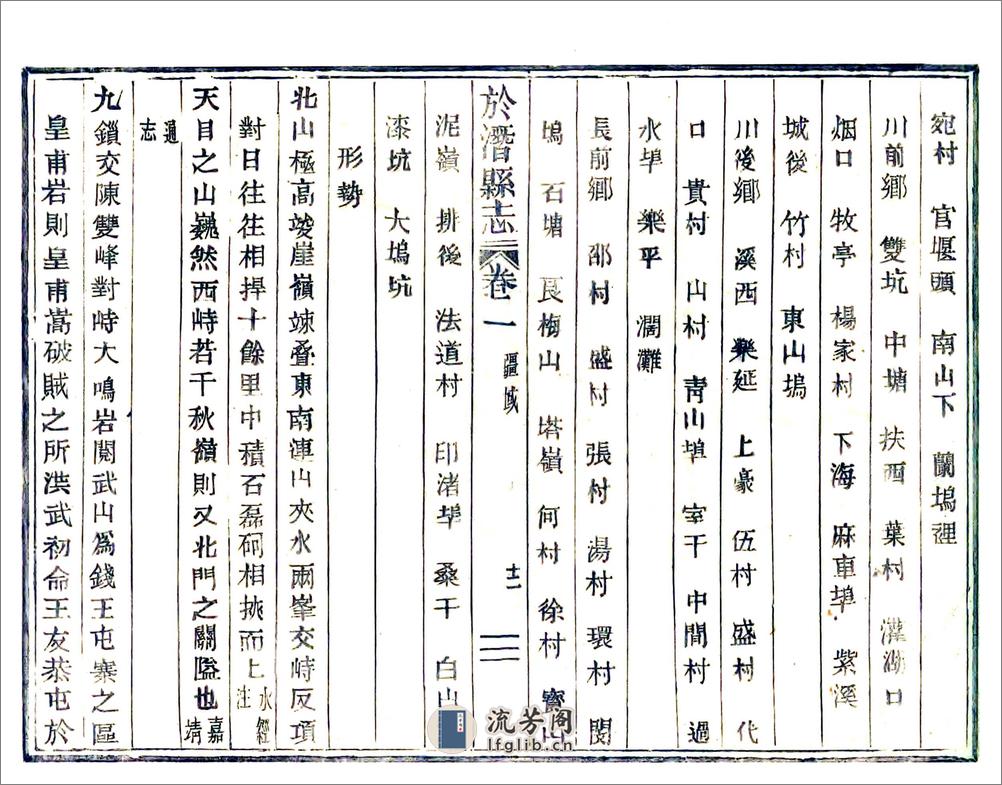 宛村　官堰頭　南山下　蘭塢浬
川前鄉　雙坑　中塘　扶西　葉村　灌湖口
烟口　牧亭　楊家村　下海　麻車埠　紫溪
城後　竹村　東山塢
川後鄉　溪西　樂延　上豪　伍村　盛村　代
口　貴村　山村　青山埠　室干　中間村　過
水埠　樂平　濶灘
長前鄉　邵村　盛村　張村　湯村　環村　閔
塢　石塘　艮梅山　塔嶺　何村　徐村　寳山
於潛縣志　卷一　疆域　十二
泥嶺　排後　法道村　印渚埠　桑干　白山
漆坑　大塢坑
形勢
北山極高峻崖嶺竦叠東南連山夾水兩峯交峙反項
對日往往相捍十餘里中積石磊砢相挾而上水經注
天目之山巍然西峙若千秋嶺則又北門之關隘也嘉靖
通志
九鎖交陳雙峰對峙大鳴岩閱武山爲錢王屯寨之區
皇甫岩則皇甫嵩破賊之所洪武初命王友恭屯於
流芳阁
lfglib.cn